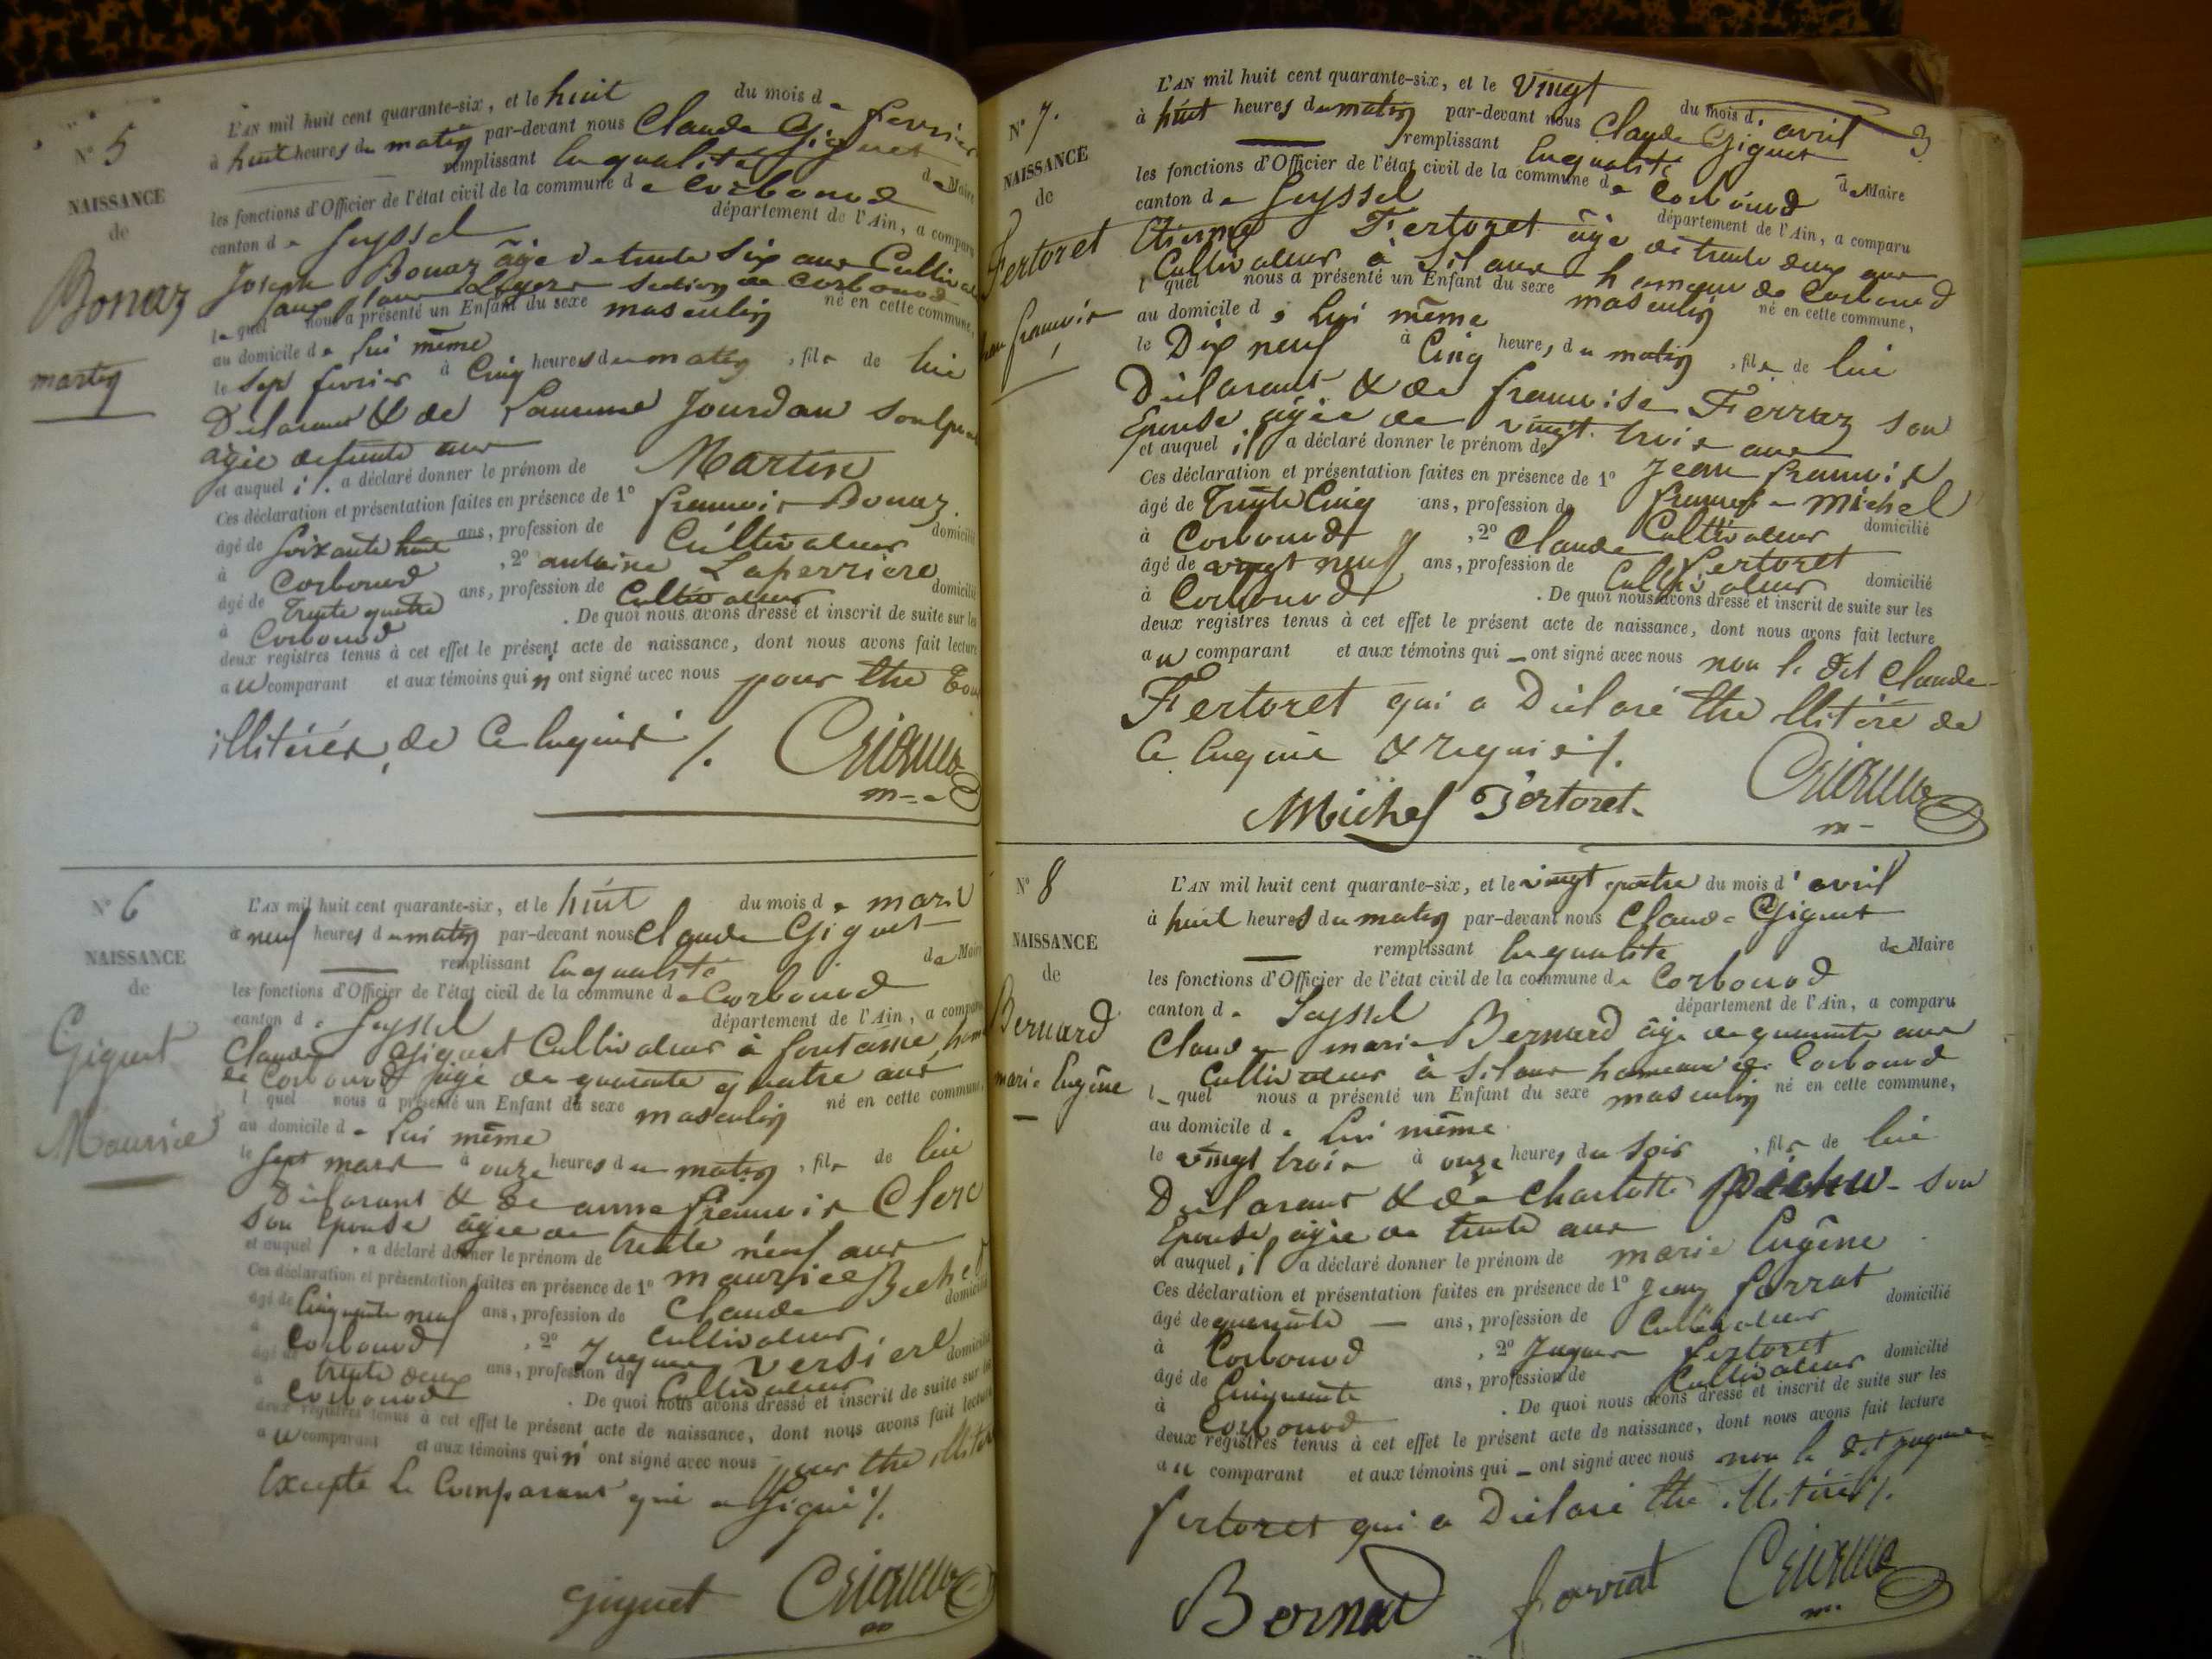 N° 5
NAISSANCE
de
Bonaz
martin
L'AN mil huit cent quarante-six, et le huit du mois de fevrier
à huit heures du matin par-devant nous Claude Giguet
remplissant en qualité de Maire
les fonctions d'Officier de l'état civil de la commune de Corbonod
canton de Seyssel département de l'Ain, a comparu
Joseph Bonaz âgé de trente six ans
section de Corbonod
lequel nous a présenté un Enfant du sexe masculin né en cette commune,
au domicile de lui même
le sept fevrier à Cinq heures du matin, fils de lui
Déclarant & de Jourdan son
agée de trente ans
et auquel il a déclaré donner le prénom de Martin
Ces déclaration et présentation faites en présence de 1° francois Bonaz
âgé de soixante huit ans, profession de Cultivateur domicilié
à Corbonod, 2° antoine Laperriere
âgé de Trente quatre ans, profession de Cultivateur domicilié
à Corbonod. De quoi nous avons dressé et inscrit de suite sur les
deux registres tenus à cet effet le présent acte de naissance, dont nous avons fait lecture
au comparant et aux témoins qui n'ont signé avec nous pour être
illitérés, de ce enquis ./.
N° 6
NAISSANCE
de
Giguet
Maurice
L'AN mil huit cent quarante-six, et le huit du mois de mars
à neuf heures du matin par-devant nous Claude Giguet
remplissant en qualité de Maire
les fonctions d'Officier de l'état civil de la commune de Corbonod
canton de Seyssel département de l'Ain, a comparu
Claude Giguet Cultivateur à fontaine
de Corbonod agé de quarante quatre ans
l quel nous a présenté un Enfant du sexe masculin né en cette commune,
au domicile de lui même
le sept mars à onze heures du matin, fils de lui
Déclarant & de anne francoise Clerc
son Epouse âgée de trente neuf ans
et auquel , a déclaré donner le prénom de maurice
Ces déclaration et présentation faites en présence de 1° Claude
âgé de Cinquante neuf ans, profession de Cultivateur domicilié
à Corbonod, 2° Jacques
âgé de trente deux ans, profession de Cultivateur domicilié
à Corbonod. De quoi nous avons dressé et inscrit de suite sur les
deux registres tenus à cet effet le présent acte de naissance, dont nous avons fait lecture
au comparant et aux témoins qui n'ont signé avec nous pour être
Excepté le Comparant qui a signé ./.
Giguet
3
N° 7.
NAISSANCE
de
Fertoret
Jean francois
L'AN mil huit cent quarante-six, et le Vingt du mois d'avril
à huit heures du matin par-devant nous Claude Giguet
remplissant en qualité de Maire
les fonctions d'Officier de l'état civil de la commune de Corbonod
canton de Seyssel département de l'Ain, a comparu
Etienne Fertoret âgé de trente deux ans
Cultivateur à Silans hameau de Corbonod
l quel nous a présenté un Enfant du sexe masculin né en cette commune,
au domicile de lui même
le Dix neuf à Cinq heures du matin, fils de lui
Déclarant & de francoise Ferraz son
Epouse âgée de vingt trois ans
et auquel il a déclaré donner le prénom de Jean francois
Ces déclaration et présentation faites en présence de 1° francois michel
âgé de Trente Cinq ans, profession de Cultivateur domicilié
à Corbonod, 2° Claude fertoret
âgé de vingt neuf ans, profession de Cultivateur domicilié
à Corbonod. De quoi nous avons dressé et inscrit de suite sur les
deux registres tenus à cet effet le présent acte de naissance, dont nous avons fait lecture
au comparant et aux témoins qui _ ont signé avec nous non le dit Claude
Fertoret qui a Déclaré être illitéré de
ce enquis & requis ./.
Michel Fertoret
N° 8
NAISSANCE
de
Bernard
marie Eugêne
L'AN mil huit cent quarante-six, et le vingt quatre du mois d'avril
à huit heures du matin par-devant nous Claude Giguet
remplissant en qualité de Maire
les fonctions d'Officier de l'état civil de la commune de Corbonod
canton de Seyssel département de l'Ain, a comparu
Claude marie Bernard âgé de quarante ans
Cultivateur à Silans hameau de Corbonod
l_ quel nous a présenté un Enfant du sexe masculin né en cette commune,
au domicile de lui même
le vingt trois à onze heures du soir, fils de lui
Déclarant & de Charlotte son
Epouse âgée de trente ans
et auquel il a déclaré donner le prénom de marie Eugêne
Ces déclaration et présentation faites en présence de 1° Jean forrat
âgé de quarante — ans, profession de Cultivateur domicilié
à Corbonod, 2° Jaques fertoret
âgé de Cinquante ans, profession de Cultivateur domicilié
à Corbonod. De quoi nous avons dressé et inscrit de suite sur les
deux registres tenus à cet effet le présent acte de naissance, dont nous avons fait lecture
au comparant et aux témoins qui _ ont signé avec nous non le dit Jaques
fertoret qui a Déclaré être illitéré ./.
Bernard forrat